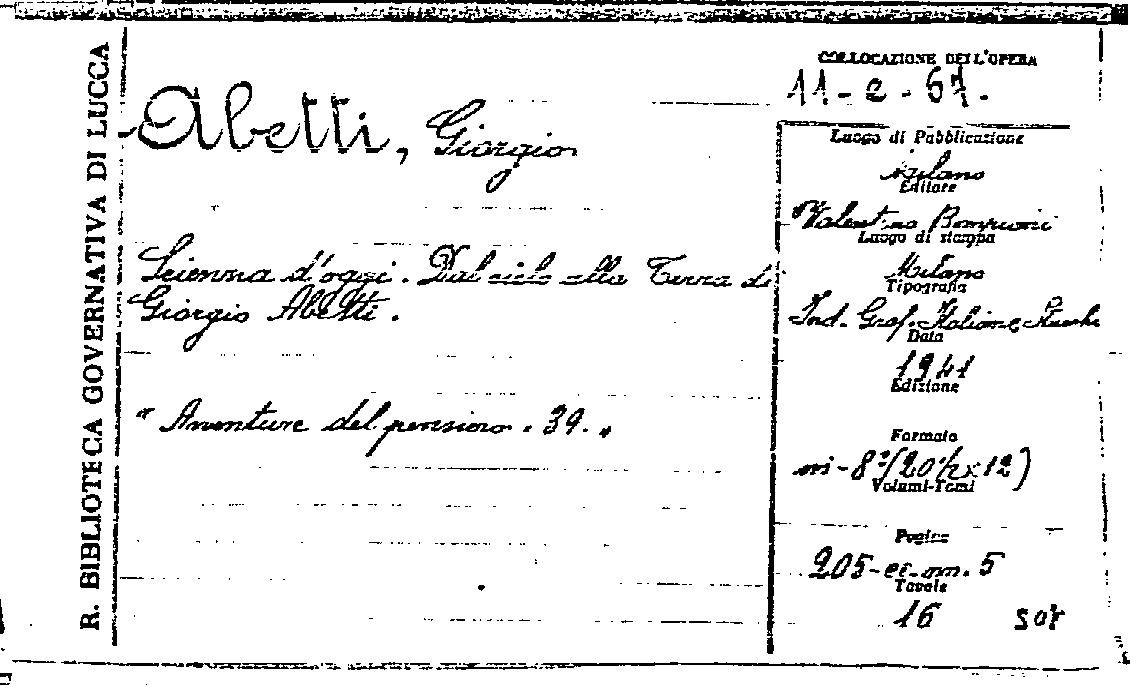 R. BIBLIOTECA GOVERNATIVA DI LUCCA
Abetti, Giorgio
Scienza d'oggi. Dal cielo alla Terra di
Giorgio Abetti.
" Avventure del pensiero. 39. "
COLLOCAZIONE DELL'OPERA
11 - e - 67.
Luogo di Pubblicazione
Milano
Editore
Valentino Bompiani
Luogo di stampa
Milano
Tipografia
Ind. Graf. Italiane Stucchi
Data
1941
Edizione
Formato
in-8°(20½x12)
Volumi-Tomi
Pagine
205- 5
Tavole
16 sor